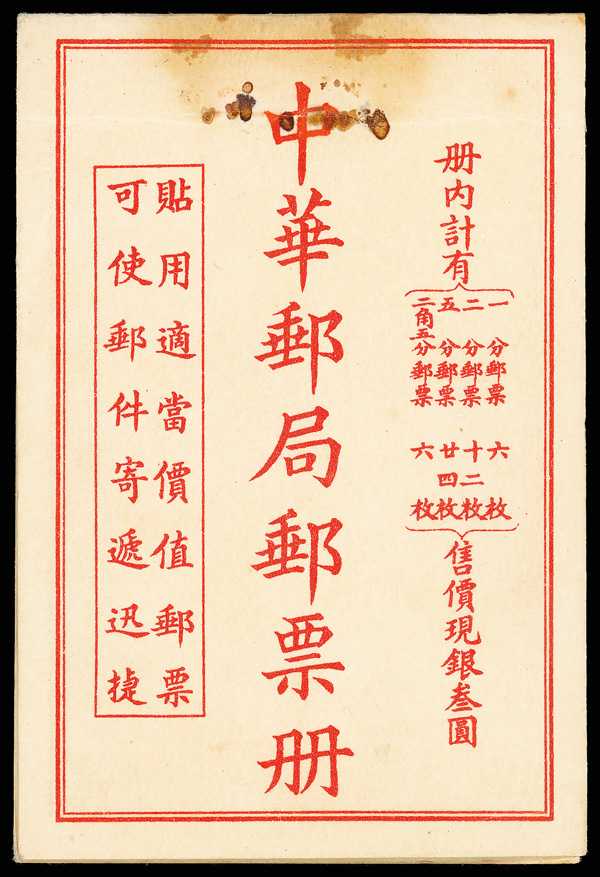 册内計有
一分郵票六枚
二分郵票十二枚
五分郵票廿四枚
二角五分郵票六枚
售價現銀叁圓
中華郵局郵票册
貼用適當價值郵票
可使郵件寄遞迅捷